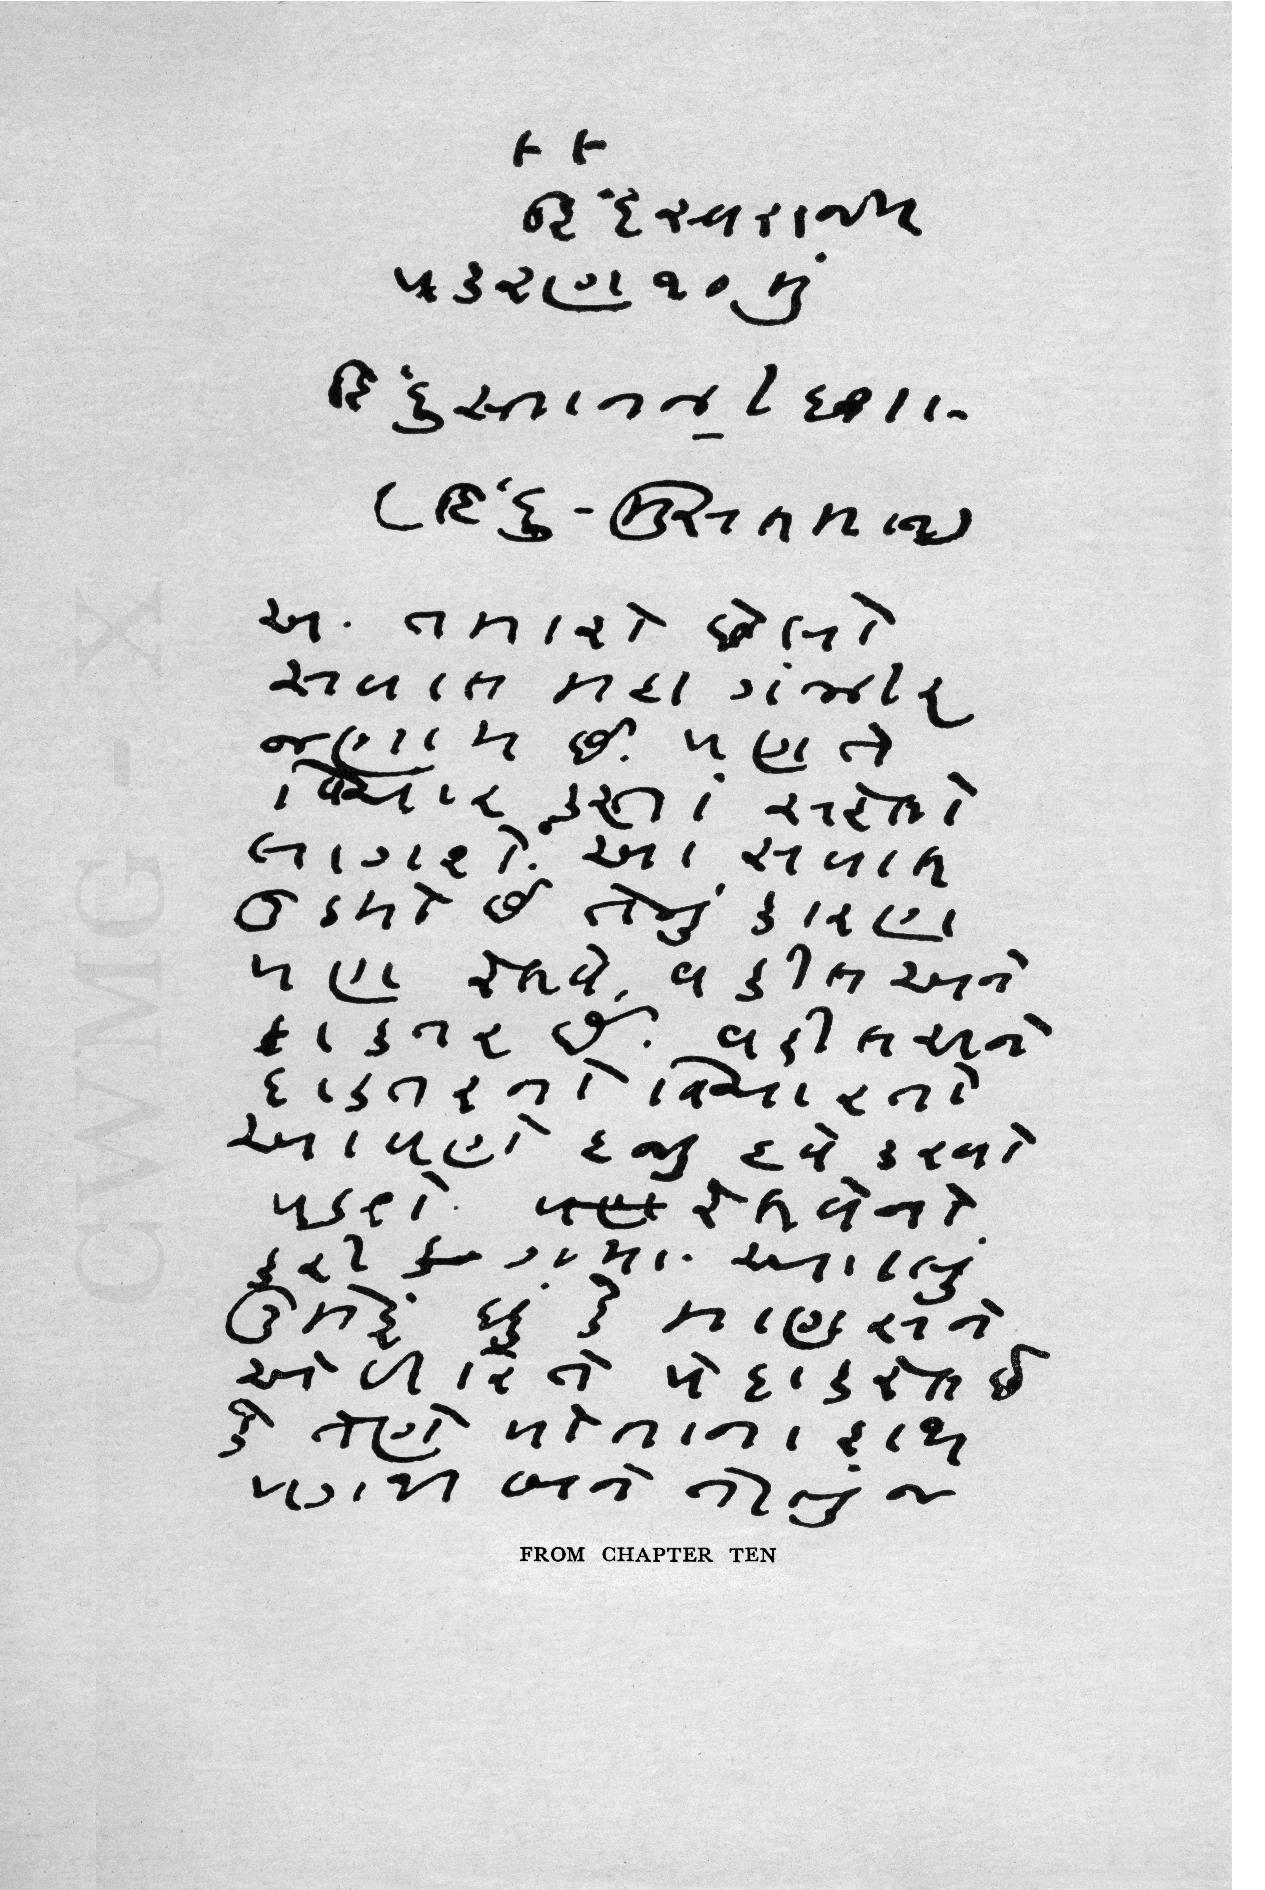 ૫૫
હિંદ સ્વરાજ્ય
પ્રકરણ ૧૦ મું
હિંદુસ્તાનની દશા-
(હિંદુ-મુસલમાન)
અ. તમારો છેલો
સવાલ મહા ગંભીર
જણાય છે. પણ તે
વિચાર કરતાં સહેલો
લાગશે. આ સવાલ
ઉઠયો છે તેનું કારણ
પણ રેલવે, વકીલ અને
દાકતર છે. વકીલ અને
દાકતરનો વિચાર તો
આપણે હજુ હવે કરવો
પડશે. રેલવેનો
કરી ગયા. આટલું
ઉમેરું છું કે માણસને
એવી રીતે પેદા કરેલ છે
કે તેણે પોતાના હાથ
પગથી બને તેટલું જ
FROM CHAPTER TEN
CWMG-X